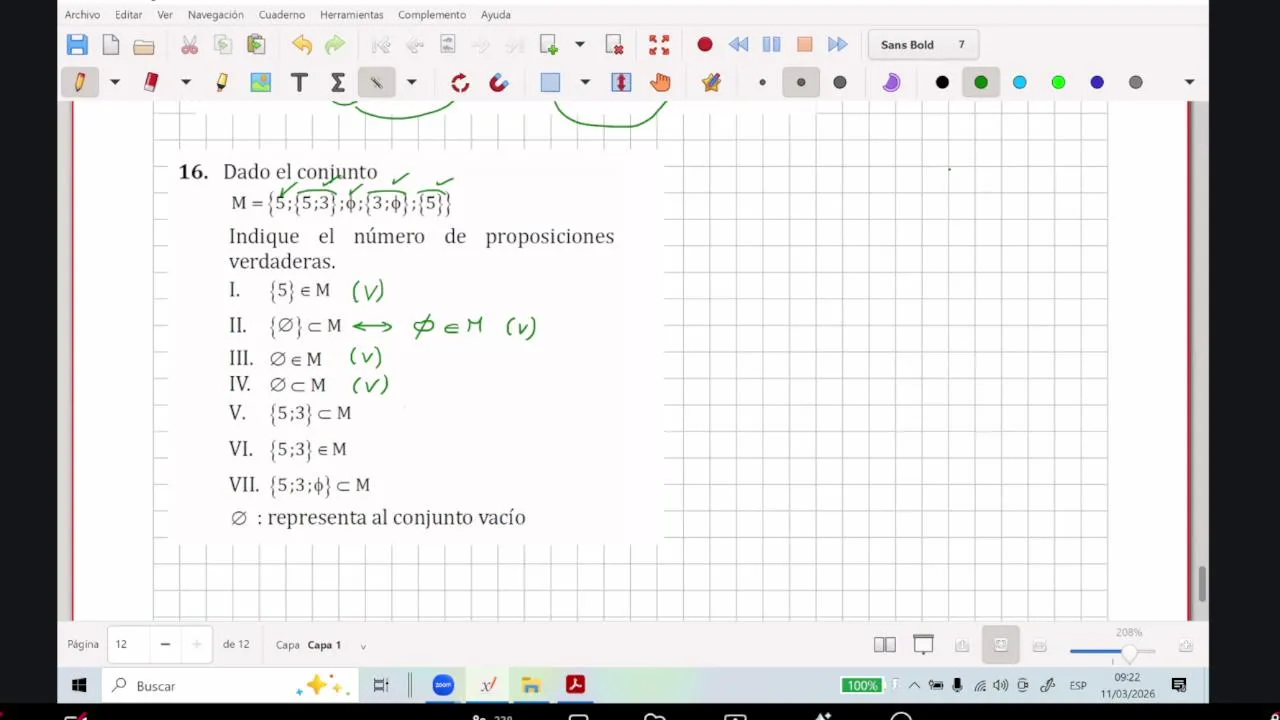 Archivo Editar Ver Navegación Cuaderno Herramientas Complemento Ayuda
Sans Bold 7
16. Dado el conjunto
M = {5;{5;3};ϕ;{3;ϕ};{5}}
Indique el número de proposiciones
verdaderas.
I. {5} ∈ M (V)
II. {∅} ⊂ M ↔ ϕ ∈ M (V)
III. ∅ ∈ M (V)
IV. ∅ ⊂ M (V)
V. {5;3} ⊂ M
VI. {5;3} ∈ M
VII. {5;3;ϕ} ⊂ M
∅ : representa al conjunto vacío
Página 12 de 12 Capa Capa 1 208%
Buscar zoom 100% ESP 09:22
11/03/2026